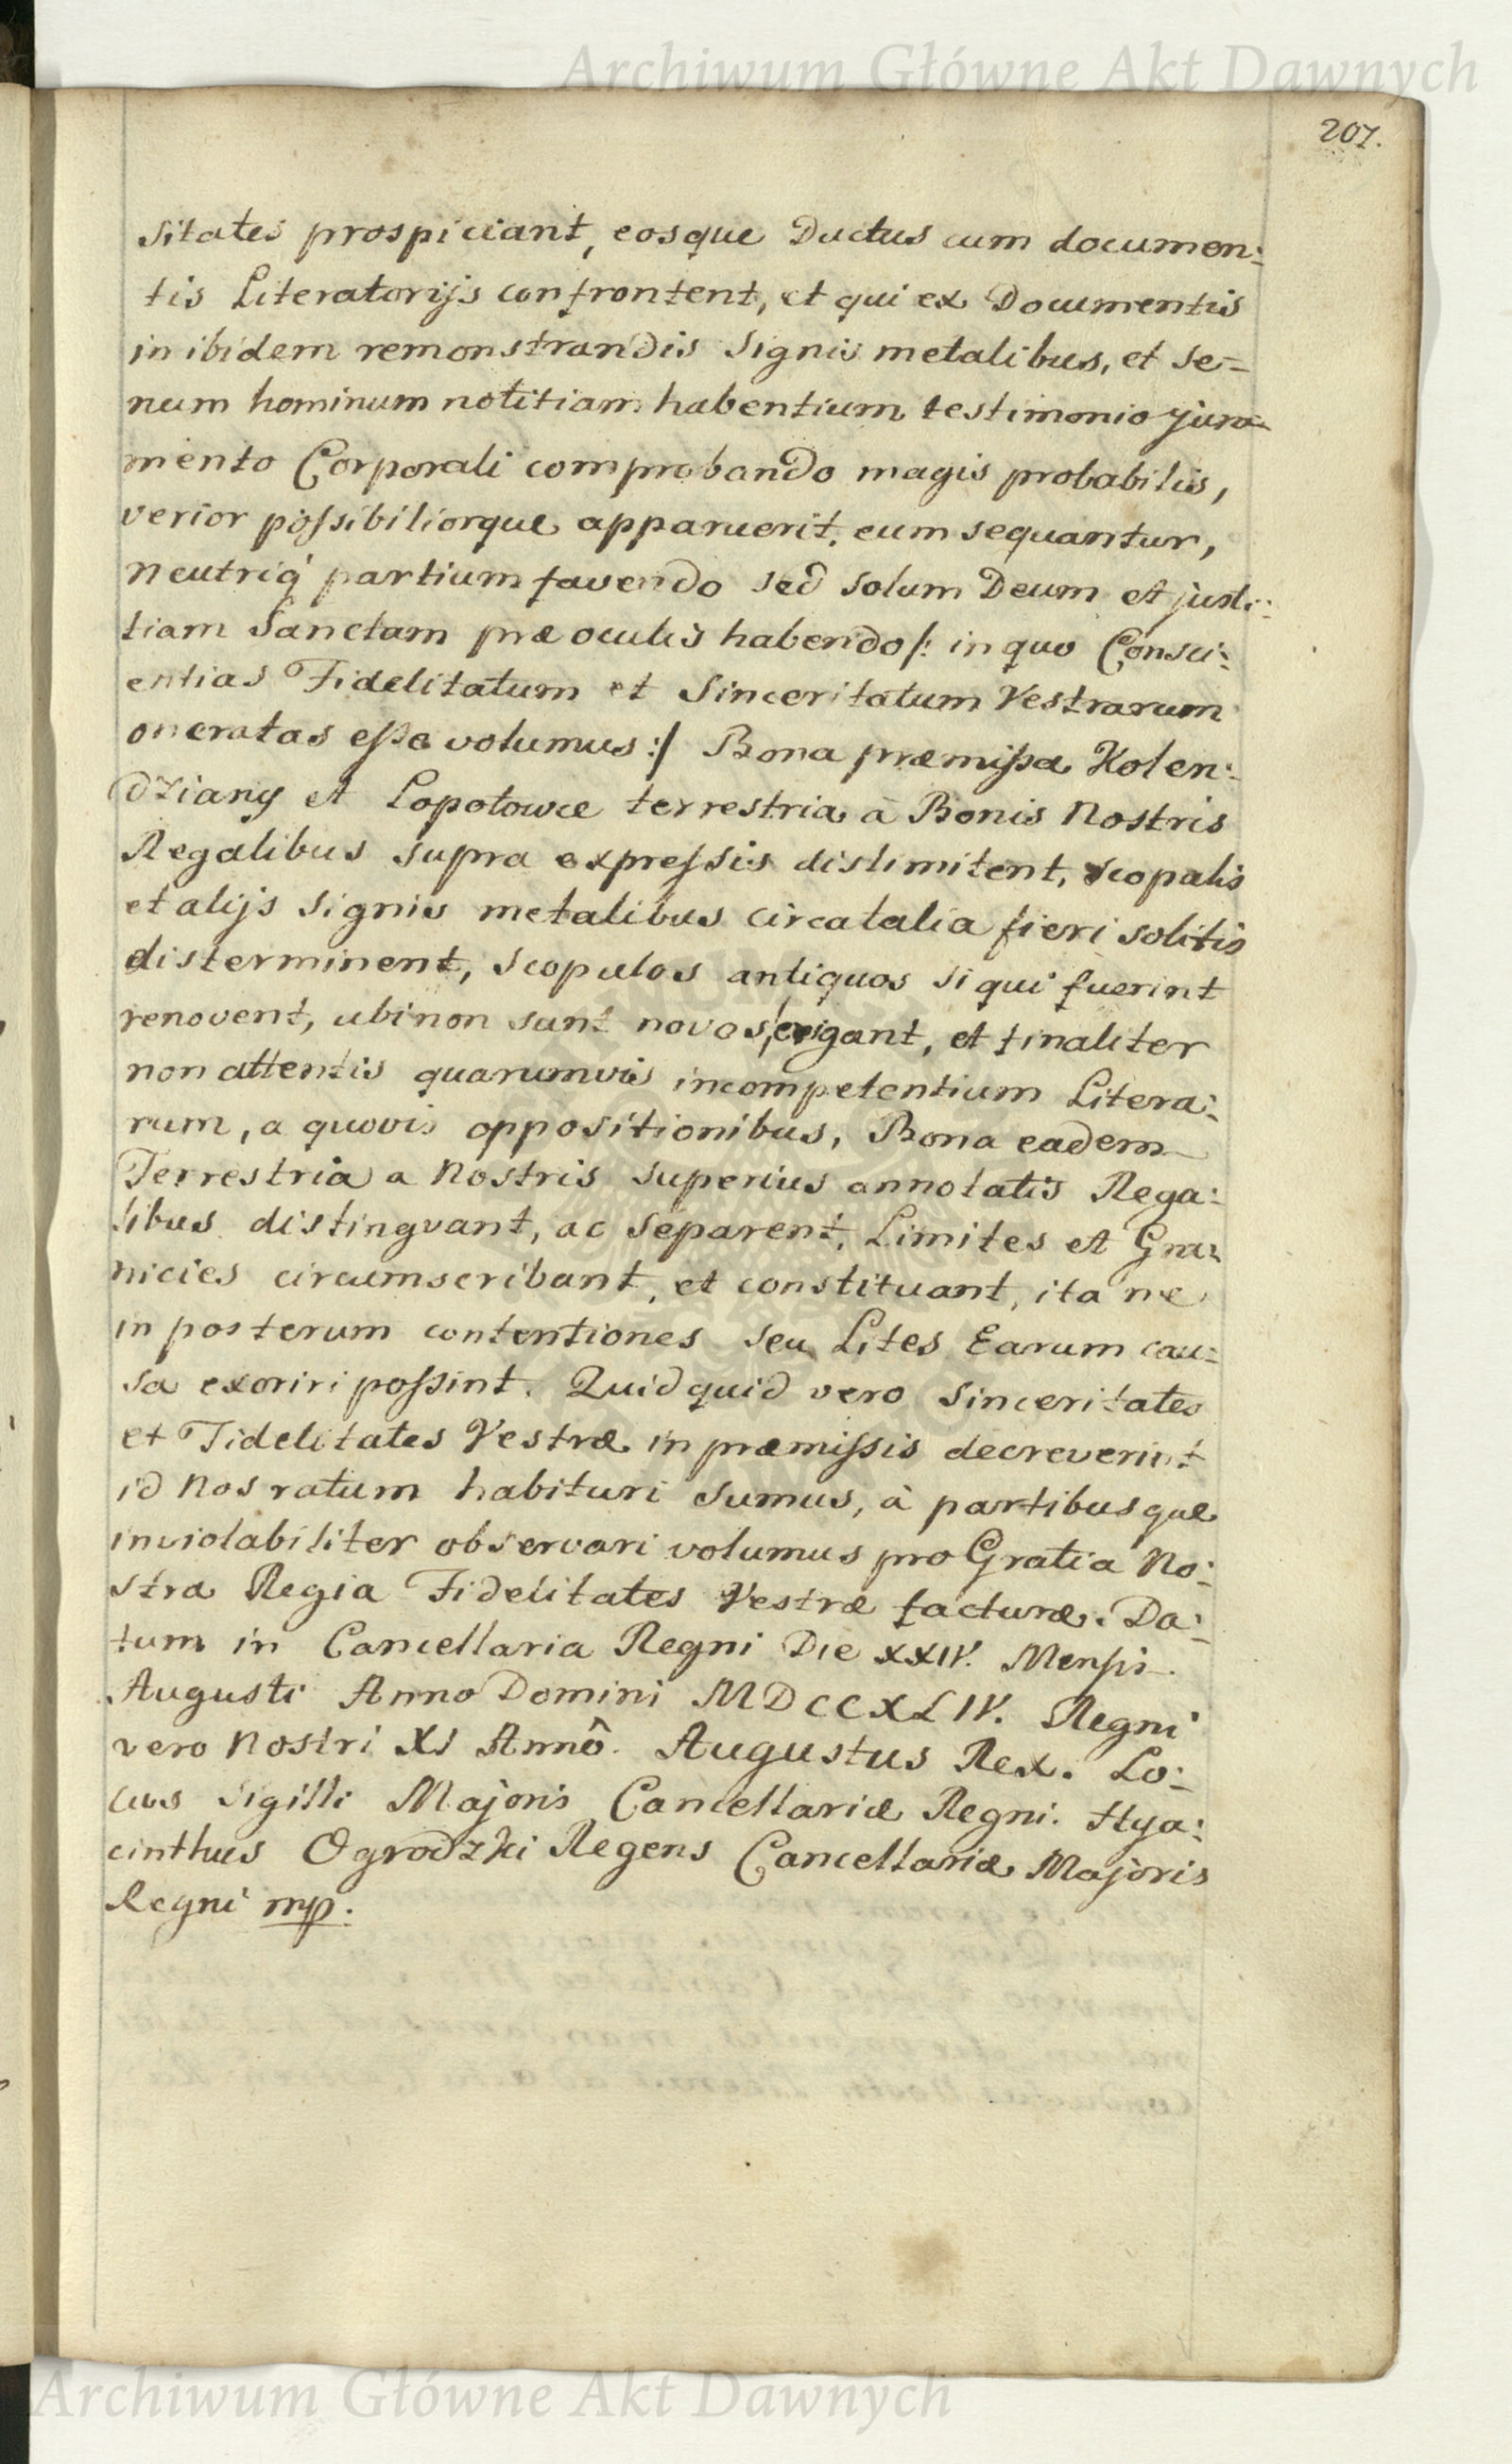 Archiwum Główne Akt Dawnych
207.
sitates prospiciant, eosque Ductus cum documen:
tis Literatorijs confrontent, et qui ex Documentis
inibidem remonstrandis Signis metalibus, et se=
num hominum notitiam habentium testimonio jura=
mento Corporali comprobando magis probabilis,
verior possibiliorque apparuerit, eum sequantur,
neutriq́ partium favendo sed solum Deum et justi:
tiam Sanctam præ oculis habendo /: in quo Consci:
entias Fidelitatum et Sinceritatum Vestrarum
oneratas esse volumus :/ Bona præmissa Kolen:
dziany et Lopotowce terrestria à Bonis Nostris
Regalibus supra expressis dislimitent, scopulis
et alijs signis metalibus circa talia fieri solitis
disterminent, scopulos antiquos si qui fuerint
renovent, ubi non sunt novos erigant, et finaliter
non attentis quarumvis incompetentium Litera:
rum, a quovis oppositionibus, Bona eadem
Terrestria a Nostris superius annotatis Rega:
libus distingvant, ac separent, Limites et Gra:
nicies circumscribant, et constituant, ita ne
in posterum contentiones seu Lites Earum cau:
sa exoriri possint. Quidquid vero Sinceritates
et Fidelitates Vestræ in præmissis decreverint
id Nos ratum habituri sumus, à partibusque
inviolabiliter observari volumus pro Gratia No:
stra Regia Fidelitates Vestræ facturæ. Da:
tum in Cancellaria Regni Die XXIV. Mensis
Augusti Anno Domini MDCCXLIV. Regni
vero Nostri XI Annô. Augustus Rex. Lo:
cus Sigilli Majoris Cancellariæ Regni. Hya:
cinthus Ogrodzki Regens Cancellariæ Majoris
Regni mp.
Archiwum Główne Akt Dawnych